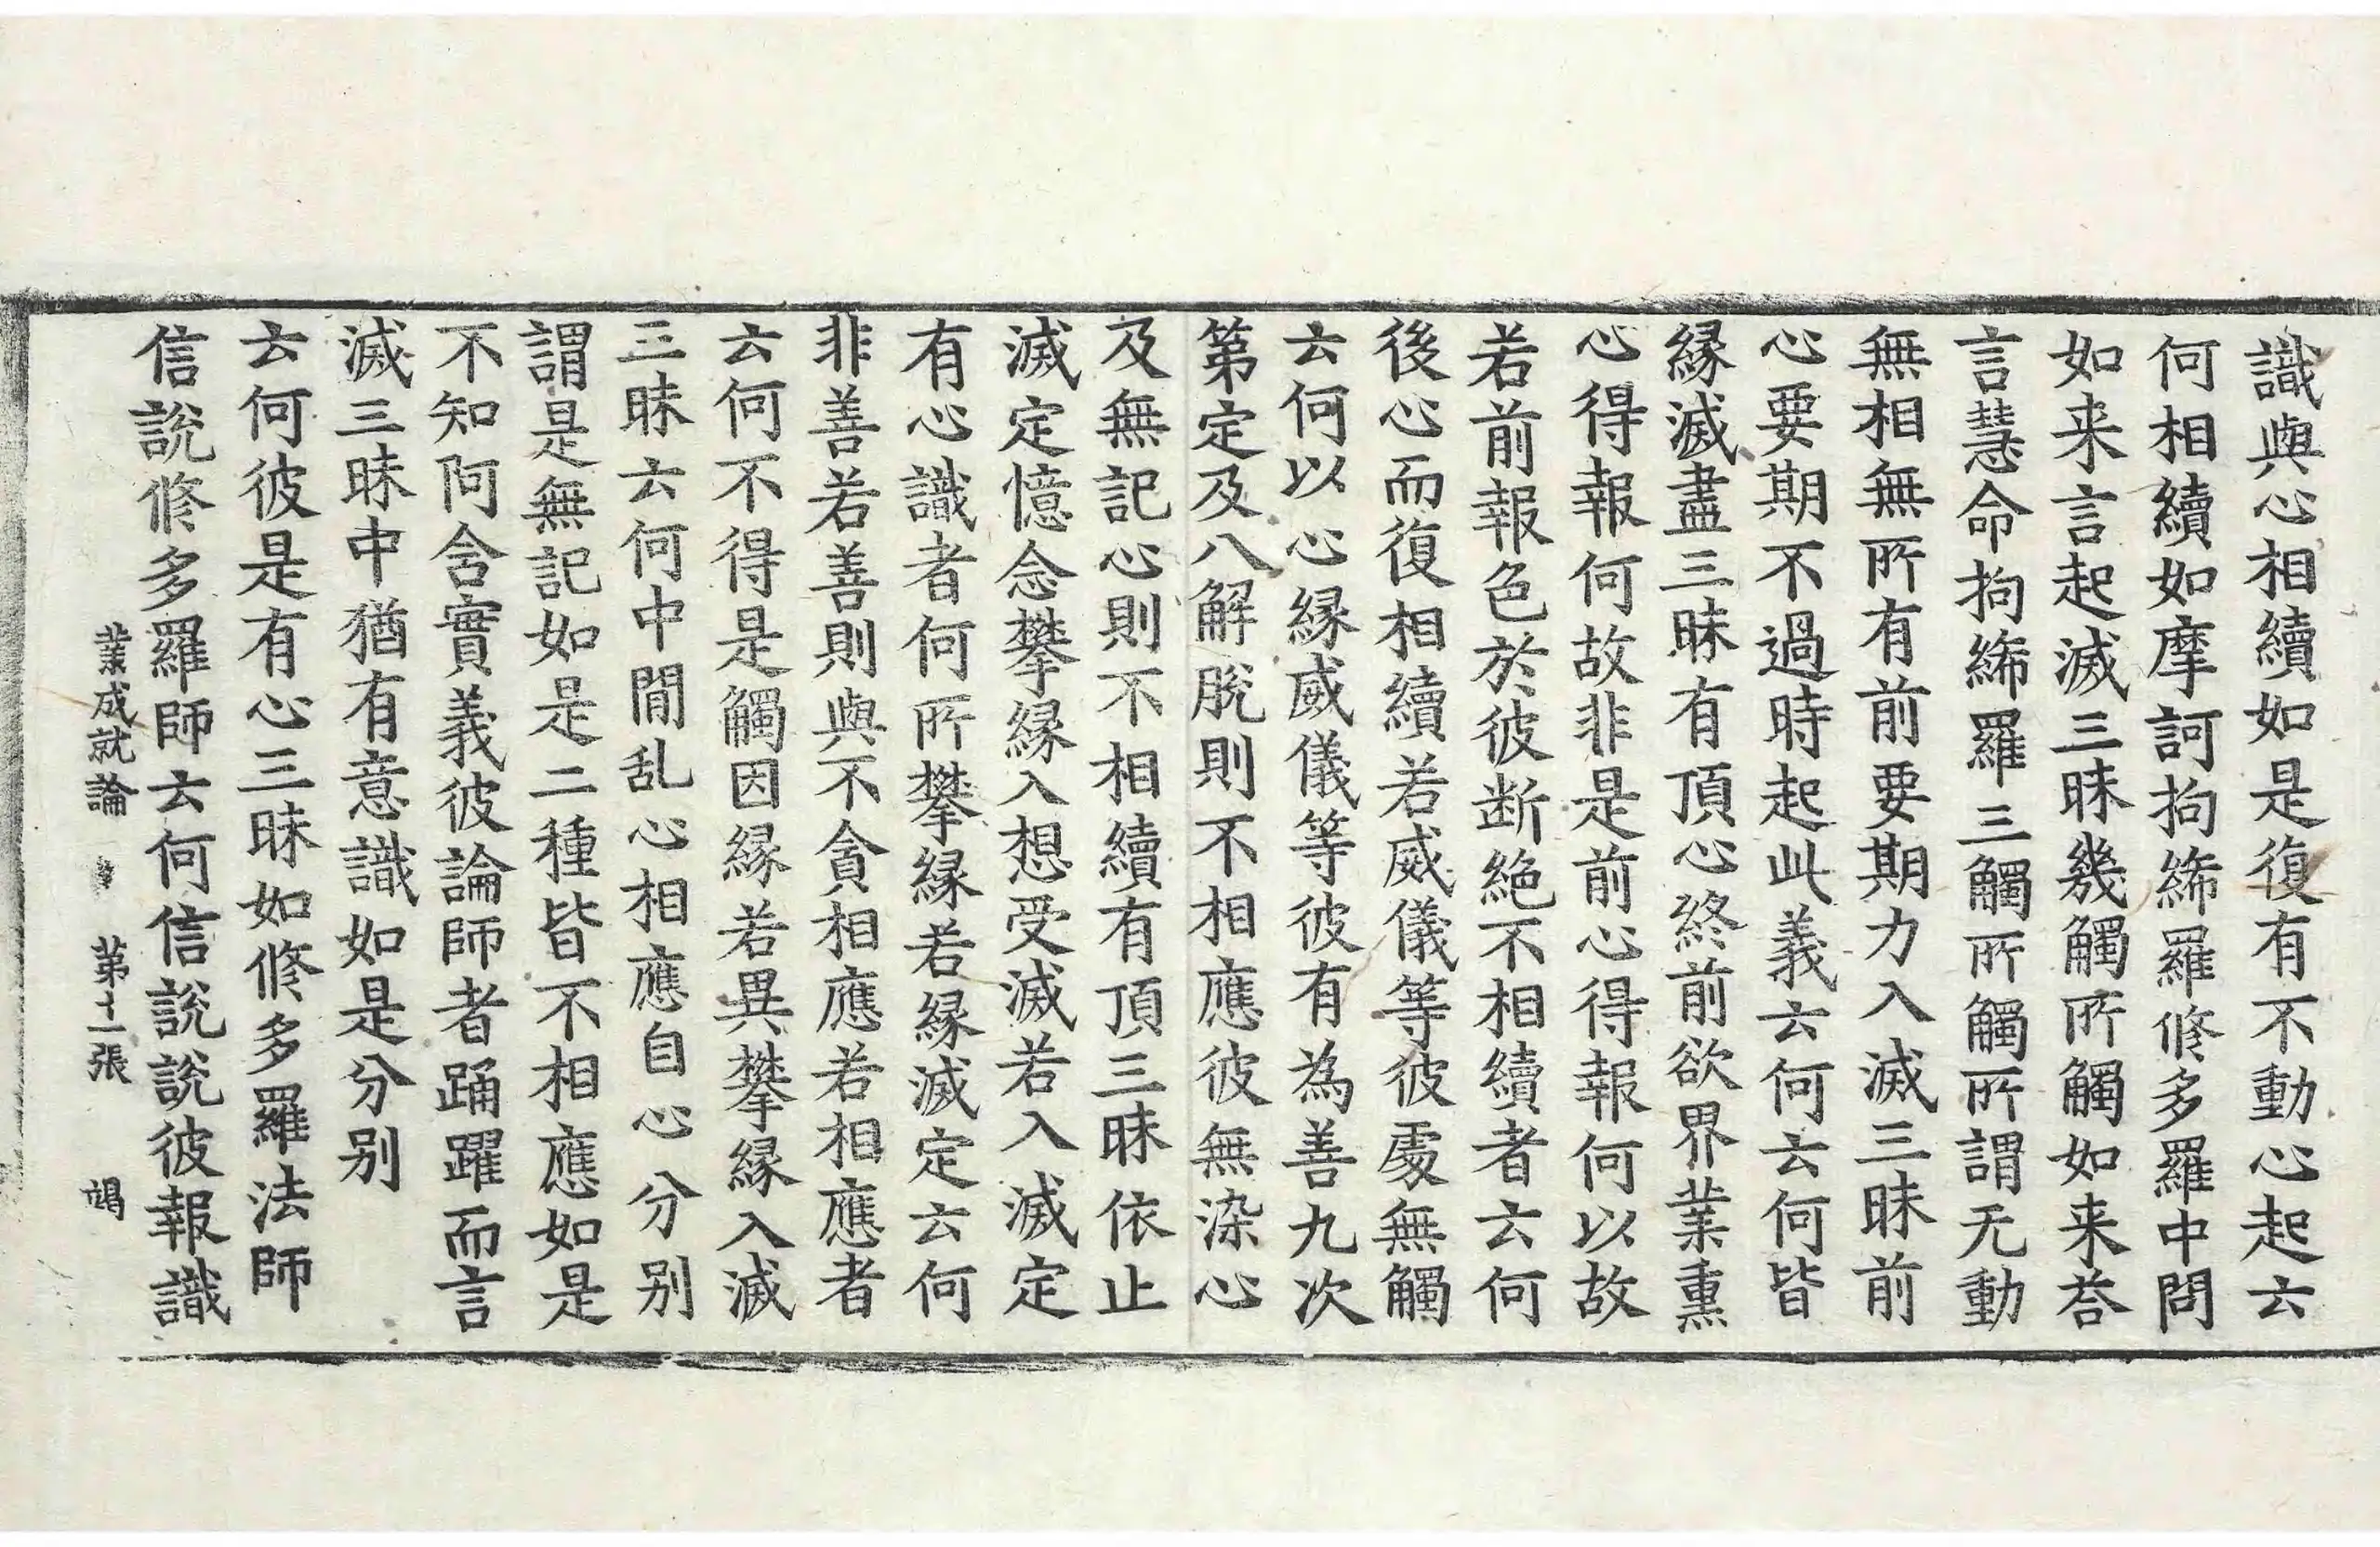 識與心相續如是復有不動心起云
何相續如摩訶拘絺羅修多羅中問
如来言起滅三昧幾觸所觸如来荅
言慧命拘絺羅三觸所觸所謂无動
無相無所有前要期力入滅三昧前
心要期不過時起此義云何云何皆
緣滅盡三昧有頂心終前欲界業熏
心得報何故非是前心得報何以故
若前報色於彼断絶不相續者云何
後心而復相續若威儀等彼處無觸
云何以心緣威儀等彼有為善九次
第定及八解脫則不相應彼無染心
及無記心則不相續有頂三昧依止
滅定憶念攀緣入想受滅若入滅定
有心識者何所攀緣若緣滅定云何
非善若善則與不貪相應若相應者
云何不得是觸因緣若異攀緣入滅
三昧云何中間乱心相應自心分别
謂是無記如是二種皆不相應如是
不知阿含實義彼論師者踊躍而言
滅三昧中猶有意識如是分别
云何彼是有心三昧如修多羅法師
信說修多羅師云何信說說彼報識
業成就論 第十二張 竭